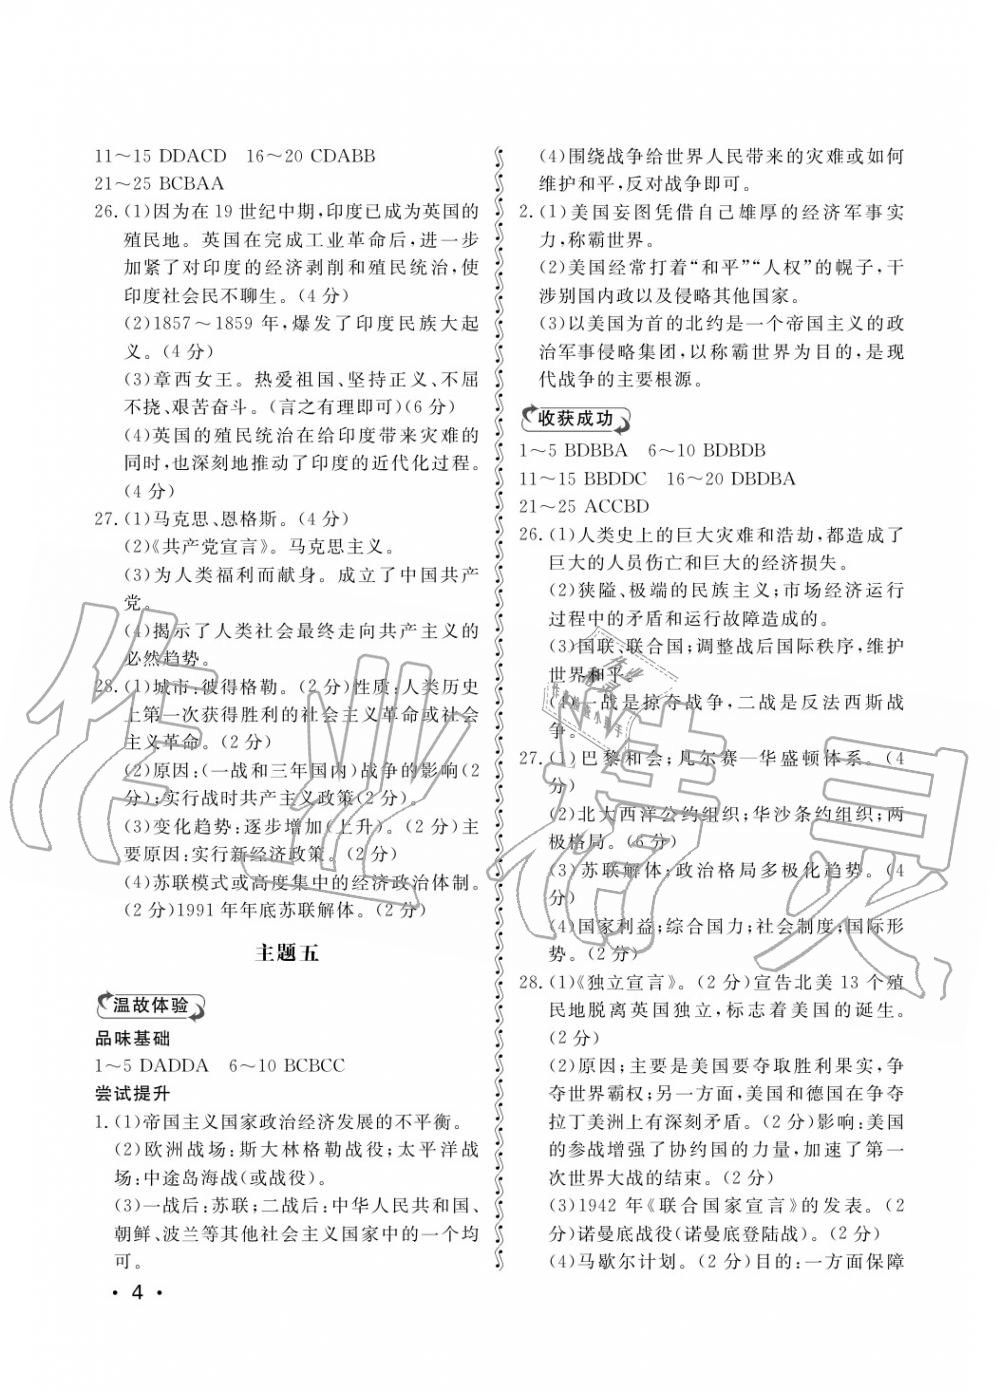 11～15 DDACD　16～20 CDABB
21～25 BCBAA
26.(1)因为在19世纪中期,印度已成为英国的
殖民地。英国在完成工业革命后,进一步
加紧了对印度的经济剥削和殖民统治,使
印度社会民不聊生。(4分)
(2)1857～1859年,爆发了印度民族大起
义。(4分)
(3)章西女王。热爱祖国、坚持正义、不屈
不挠、艰苦奋斗。(言之有理即可)(6分)
(4)英国的殖民统治在给印度带来灾难的
同时,也深刻地推动了印度的近代化过程。
(4分)
27.(1)马克思、恩格斯。(4分)
(2)《共产党宣言》。马克思主义。
(3)为人类福利而献身。成立了中国共产
党。
(4)揭示了人类社会最终走向共产主义的
必然趋势。
28.(1)城市:彼得格勒。(2分)性质:人类历史
上第一次获得胜利的社会主义革命或社会
主义革命。(2分)
(2)原因:(一战和三年国内)战争的影响(2
分);实行战时共产主义政策(2分)。
(3)变化趋势:逐步增加(上升)。(2分)主
要原因:实行新经济政策。(2分)
(4)苏联模式或高度集中的经济政治体制。
(2分)1991年年底苏联解体。(2分)
主题五
温故体验
品味基础
1～5 DADDA　6～10 BCBCC
尝试提升
1.(1)帝国主义国家政治经济发展的不平衡。
(2)欧洲战场:斯大林格勒战役;太平洋战
场:中途岛海战(或战役)。
(3)一战后:苏联;二战后:中华人民共和国、
朝鲜、波兰等其他社会主义国家中的一个均
可。
(4)围绕战争给世界人民带来的灾难或如何
维护和平,反对战争即可。
2.(1)美国妄图凭借自己雄厚的经济军事实
力,称霸世界。
(2)美国经常打着“和平”“人权”的幌子,干
涉别国内政以及侵略其他国家。
(3)以美国为首的北约是一个帝国主义的政
治军事侵略集团,以称霸世界为目的,是现
代战争的主要根源。
收获成功
1～5 BDBBA　6～10 BDBDB
11～15 BBDDC　16～20 DBDBA
21～25 ACCBD
26.(1)人类史上的巨大灾难和浩劫,都造成了
巨大的人员伤亡和巨大的经济损失。
(2)狭隘、极端的民族主义;市场经济运行
过程中的矛盾和运行故障造成的。
(3)国联、联合国;调整战后国际秩序,维护
世界和平。
(4)一战是掠夺战争,二战是反法西斯战
争。
27.(1)巴黎和会;凡尔赛—华盛顿体系。(4
分)
(2)北大西洋公约组织;华沙条约组织;两
极格局。(6分)
(3)苏联解体;政治格局多极化趋势。(4
分)
(4)国家利益;综合国力;社会制度;国际形
势。(2分)
28.(1)《独立宣言》。(2分)宣告北美13个殖
民地脱离英国独立,标志着美国的诞生。
(2分)
(2)原因;主要是美国要夺取胜利果实,争
夺世界霸权;另一方面,美国和德国在争夺
拉丁美洲上有深刻矛盾。(2分)影响:美国
的参战增强了协约国的力量,加速了第一
次世界大战的结束。(2分)
(3)1942年《联合国家宣言》的发表。(2
分)诺曼底战役(诺曼底登陆战)。(2分)
(4)马歇尔计划。(2分)目的:一方面保障
· 4 ·
作业精灵